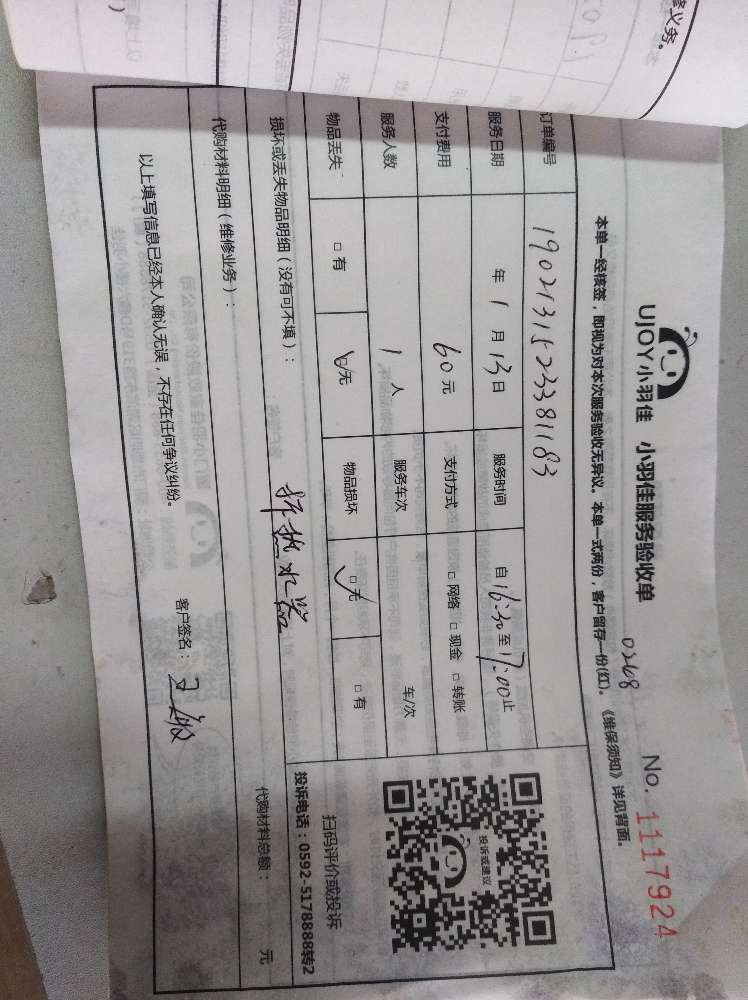 UJOY小羽佳 小羽佳服务验收单
0268 No. 1117924
本单一经核签，即视为对本次服务验收无异议。本单一式两份，客户留存一份(红)。《维保须知》详见背面。
订单编号 19021315233381183
服务日期 年 1 月 13 日 服务时间 自 16:30 至 17:00 止
支付费用 60 元 支付方式 □ 网络 □ 现金 □ 转账
服务人数 1 人 服务车次 车/次
物品丢失 □ 有 □ 无 物品损坏 □ 无 □ 有
投诉或建议
扫码评价或投诉
投诉电话：0592-5178888转2
损坏或丢失物品明细（没有可不填）：
拆热水器
代购材料明细（维修业务）： 代购材料总额： 元
以上填写信息已经本人确认无误，不存在任何争议纠纷。 客户签名：
修义务。